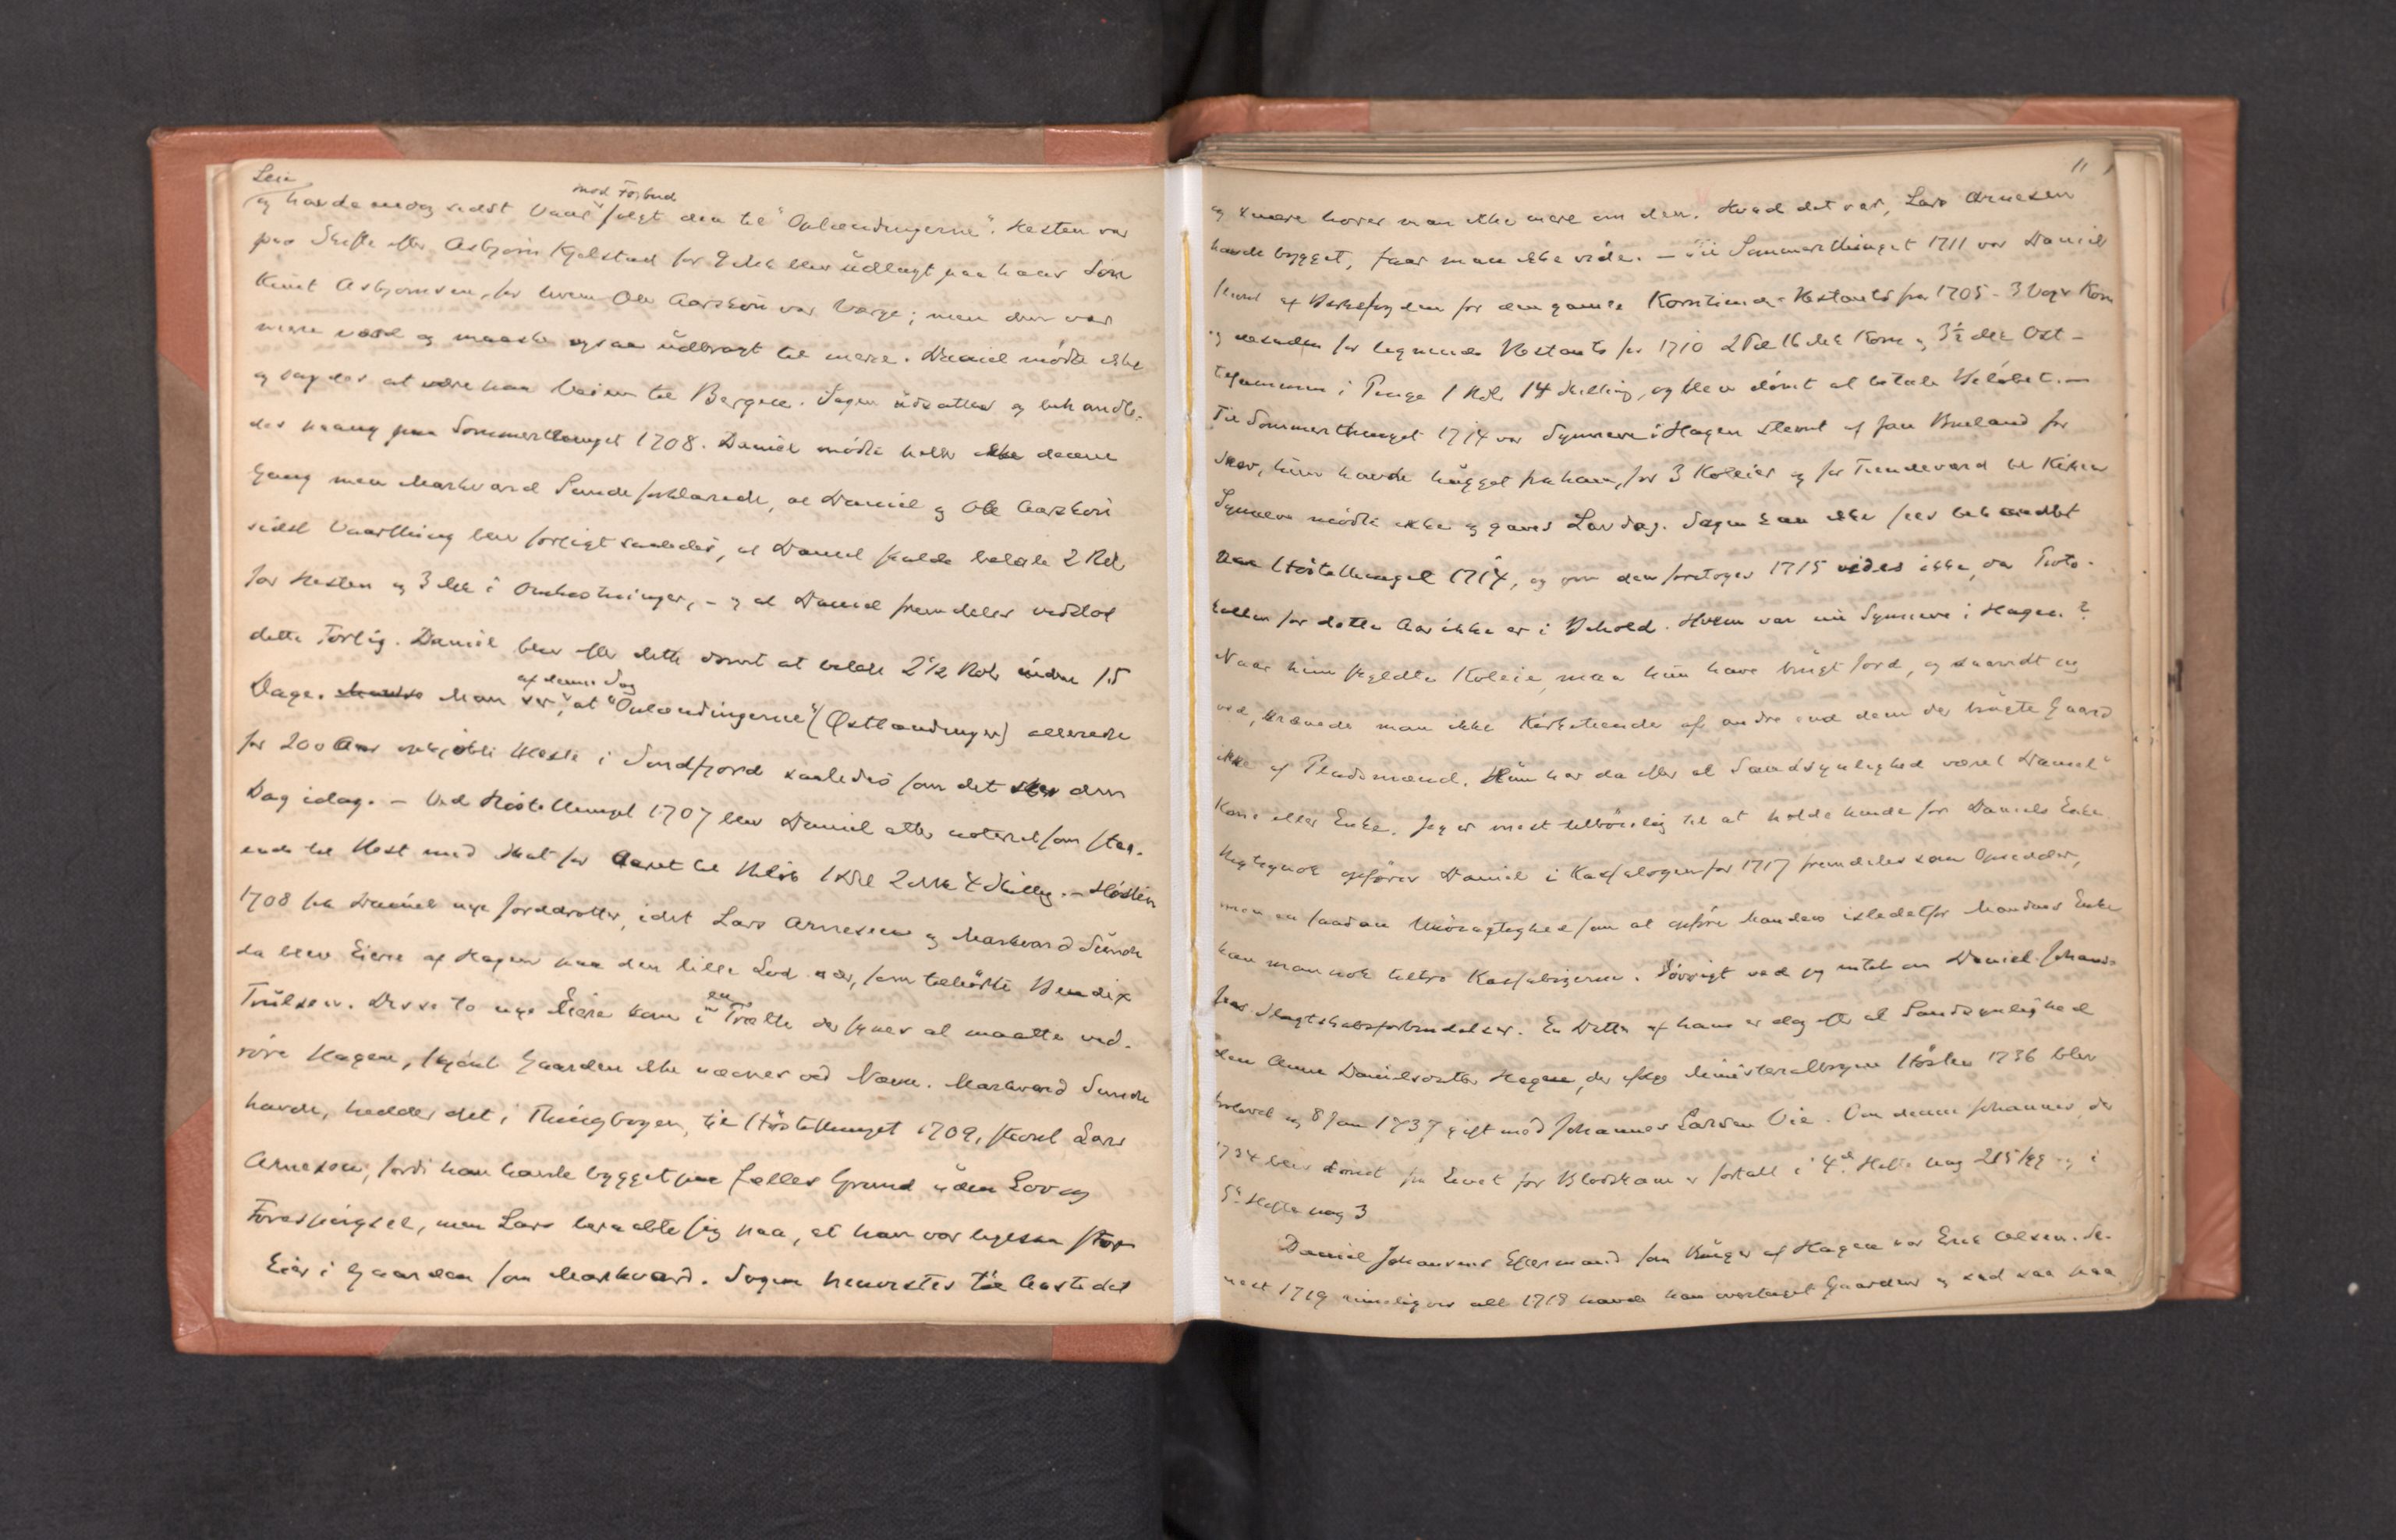 Leie
mod Forbud
og havde endog sidst Vaar solgt den til "Oplændingerne". Hesten var
paa Skifte efter Asbjørn Kjelstad for 9 Mrk blev udlagt paa hans Søn
Knut Asbjørnsen, for hvem Ole Aarskøn var Værge; men den var
mere værd og maaske ogsaa udbragt til mere. Daniel mødte ikke
og sagdes at være paa Veien til Bergen. Sagen udsattes og behandle-
des paany paa Sommerthinget 1708. Daniel mødte heller ikke denne
Gang men Markvard Sunde forklarede, at Daniel og Ole Aarskøn
sidst Vaarthing blev forligt saaledes, at Daniel skulde betale 2 Rdl
for Hesten og 3 Mrk i Omkostninger, - og at Daniel fremdeles vedstod
dette Forlig. Daniel blev efter dette dømt at betale 2 1/2 Rdr inden 15
af denne Sag
Dage. Man ser, at "Oplændingerne" (Østlændinger) allerede
for 200 Aar opkjøbte Heste i Sundfjord saaledes som det sker den
Dag idag. - Ved Høstethinget 1707 blev Daniel atter noteret som staa-
ende til Rest med Skat for Aaret til Beløb 1 Rdl 2 Mrk 4 Skilling. - Høsten
1708 fik Daniel nye Jorddrotter, idet Lars Arnesen og Markvard Sunde
da blev Eiere af Hagen paa den lille Lod nær, som tilhørte Bendix
Trulsen. Disse to nye Eiere kom i en Trætte der synes at maatte ved-
røre Hagen, skjønt Gaarden ikke nævnes ved Navn. Markvard Sunde
havde, hedder det i Thingbogen, til Høstethinget 1709, stevnt Lars
Arnesen, fordi han havde bygget paa fælles Grund uden Lov og
Forespørgsel, men Lars beraabte sig paa, at han var ligesaa stor
Eier i Gaarden som Markvard. Sagen henvistes til Aastedet
11
og senere hører man ikke mere om den. Hvad det var, Lars Arnesen
havde bygget, faar man ikke vide. - Til Sommerthinget 1711 var Daniel
stevnt af for den gamle Korntiende-Restants fra 1705 - 3 Voger Korn
og desuden for lignende Restants for 1710 2 Pd 16 Mrk Korn og 3½ Mrk Ost -
tilsammen i Penge 1 Rdr 14 Skilling, og blev dømt at betale Beløbet. -
Til Sommerthinget 1714 var Synneve i Hagen stevnt af Jan Bueland for
Skov, hun havde hugget fra ham, for 3 Koleier og for Tiendevard til Kirken
Synneve mødte ikke og gaves Lavdag. Sagen kan ikke sees behandlet
paa Høstethinget 1714, og om den foretoges 1715 vides ikke, da Proto-
kollen for dette Aar ikke er i Behold. Hvem var nu Synneve i Hagen?
Naar hun skyldte Koleie, maa hun have brugt Jord, og saavidt jeg
ved, krævede man ikke Kirketiende af andre end dem der brugte Gaard
ikke af Pladsmænd. Hun har da efter al Sandsynlighed været Daniels
Kone eller Enke. Jeg er mest tilbøielig til at holde hende for Daniels Enke
Rigtignok opføres Daniel i for 1717 fremdeles som Opsidder,
men en saadan Unøiagtighed som at opføre Manden istedetfor Mandens Enke
kan man nok tiltro . Iøvrigt ved jeg intet om Daniel Johans-
sens Slegtskabsforbindelser. En Datter af ham er dog efter al Sandsynlighed
den Anne Danielsdatter Hagen, der ifølge Ministerialbogen Høsten 1736 blev
trolovet og 8 Jan 1737 gift med Johannes Larsen Vie. Om denne Johannes, der
1734 blev dømt fra Livet for Blodskam er fortalt i 4de Hefte pag 215 fgg og i
5te Hefte pag 3
Daniel Johansens Eftermand som Bruger af Hagen var Erik Olsen. Se-
nest 1719 rimeligvis alt 1718 havde han overtaget Gaarden og sad saa paa